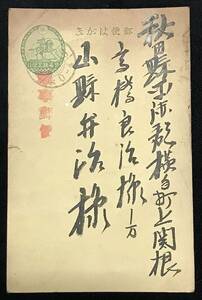 郵便はがき
軍事郵便
秋田縣平鹿郡横手町上関根
高橋良治様方
山縣井治様